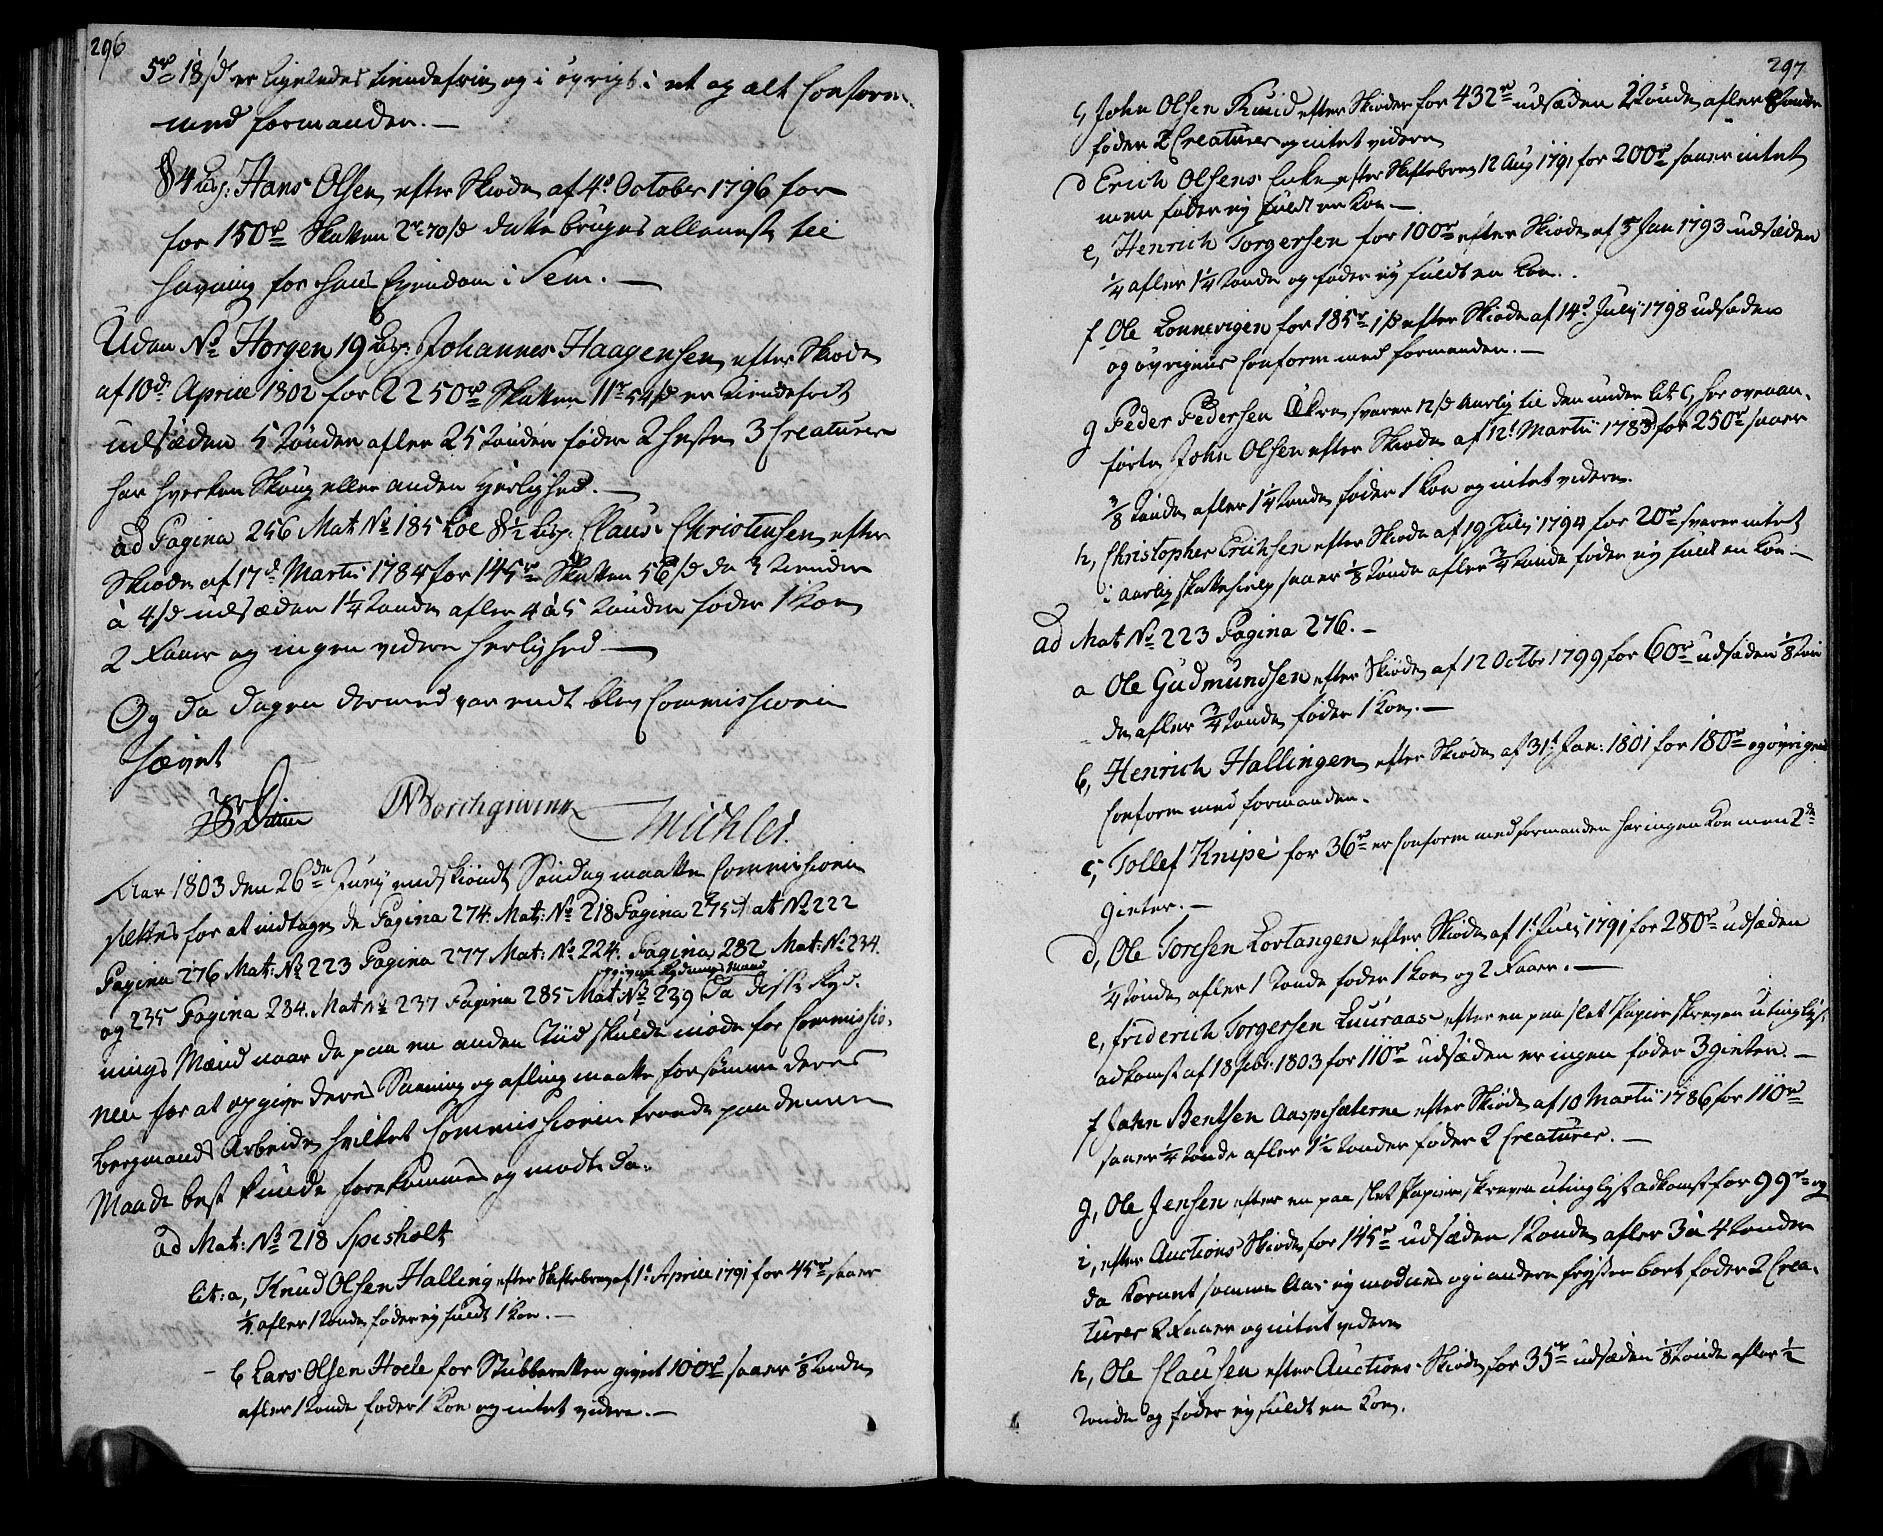 296
5rd 18 s er ligeledes tiendefrie og i øvrigt i et og alt Conform
med formanden. —
§ 4 Lisp: Hans Olsen efter Skiøde af 4d October 1796 for
for 150rd Skatten 2rd 70 s dette bruges alleneste til
havning for hans Eyendom i Sem. —
Uden No Horgen 19 Lisp: Johannes Haagensen efter Skiøde
af 10d Aprill 1802 for 2250rd Skatten 11rd 54 s er tiendefrit
udsæden 5 tønder afler 25 tønder føder 2 heste 3 Creaturer
har hverken Skoug eller anden herlighed. —
ad Pagina 256 Mat No 185 Loe 8½ Lisp: Claus Christensen efter
Skiøde af 17d Martii 1784 for 145rd Skatten 56 s da 3 tiender
à 4 s udsæden 1¼ tønde afler 4 à 5 tønder føder 1 Koe
2 Faaer og ingen videre herlighed —
Og da dagen dermed var endt blev Commissionen
hævet
Borchgrevink Michlet.
Aar 1803 den 26de Junij endskiøndt Søndag maatte Commissionen
sættes for at indtage de Pagina 274: Mat: No 218 Pagina 275 Mat No 222
Pagina 276 Mat: No 223 Pagina 277 Mat: No 224. Pagina 282 Mat: No 234.
og 235 Pagina 284. Mat No 237 Pagina 285 Mat No 239 da disse Ryd-
nings Mænd naar de paa en anden Tiid skulde møde for Commissio-
nen for at opgive deres Saaning og afling maatte forsømme deres
Bergmands Arbeide hvilket Commissionen troede paa denne
Maade best kunde forekommes og mødte da:
ad Mat: No 218 Spisholt
Lit: a, Knud Olsen Halling efter Skiftebrev af 1d Aprill 1791 for 45rd saaer
¼ afler 1 tønde føder ej fuldt 1 Koe. —
— b Lars Olsen Hoele for Stubberetten givet 100rd saaer ⅛ tønde
afler 1 tønde føder 1 Koe og intet videre. —
297
c, John Olsen Kruud efter Skiøder for 432rd udsæden 2 tønde afler 8 tønder
føder 2 Creaturer og intet videre
d Erich Olsens Enke efter Skiftebrev 12 Aug 1791 for 200rd saaer intet
men føder ej fuldt en Koe —
e, Henrich Torgersen for 100rd efter Skiøde af 5 Jan 1793 udsæden
¼ afler 1¼ tønde og føder ej fuldt en Koe.
f, Ole Lonnevigen for 185rd 1 s efter Skiøde af 14d Julij 1798 udsæden
og øvrigens Conform med formanden. —
g Peder Pedersen Økre, svarer 12 s Aarlig til den under lit c, her ovenan-
førte John Olsen efter Skiøde af 12d Martii 1783 for 250rd saaer
⅜ tønde afler 1¼ tønde føder 1 Koe og intet videre.
h, Christopher Erichsen efter Skiøde af 19 Julij 1794 for 20rd svarer intet
i Aarlig skattehielp saaer ⅛ tønde afler ¾ tønde føder ej fuldt en Koe —
ad Mat No 223 Pagina 276. —
a Ole Gudmundsen efter Skiøde af 12 Octbr 1799 for 60rd udsæden ⅛ tøn
de afler ¾ tønde føder 1 Koe. —
b, Henrich Hallingen efter Skiøde af 31t Jan: 1801 for 180rd og øvrigens
Conform med formanden.
c, Tollef Knipe for 36rd er Conform med formanden har ingen Koe men 2de
gieter. —
d, Ole Toresen Lortangen efter Skiøde af 1t Julij 1791 for 280rd udsæden
¼ tønde afler 1 tønde føder 1 Koe og 2 Faaer. —
e, Friderich Torgersen Luuraas efter en paa slet Papir skreven utinglyst
adkomst af 18 1803 for 110rd udsæden er ingen føder 3 gieter. —
f John Bentsen Aaspesæterne efter Skiøde af 10 Martii 1786 for 110rd
saaer ¼ tønde afler 1½ tønder føder 2 Creaturer. —
g, Ole Jensen efter en paa slet Papir skreven utinglyst adkomst for 99rd og
i, efter Auctions Skiøde for 145rd udsæden 1 tønde afler 3 à 4 tønder
da Kornet somme Aar ej modnes og i andre fryser bort føder 2 Crea-
turer 2 Faaer og intet videre
h, Ole Clausen efter Auctions Skiøde for 35rd udsæden ⅛ tønde afler ½
tønde og føder ej fuldt en Koe.